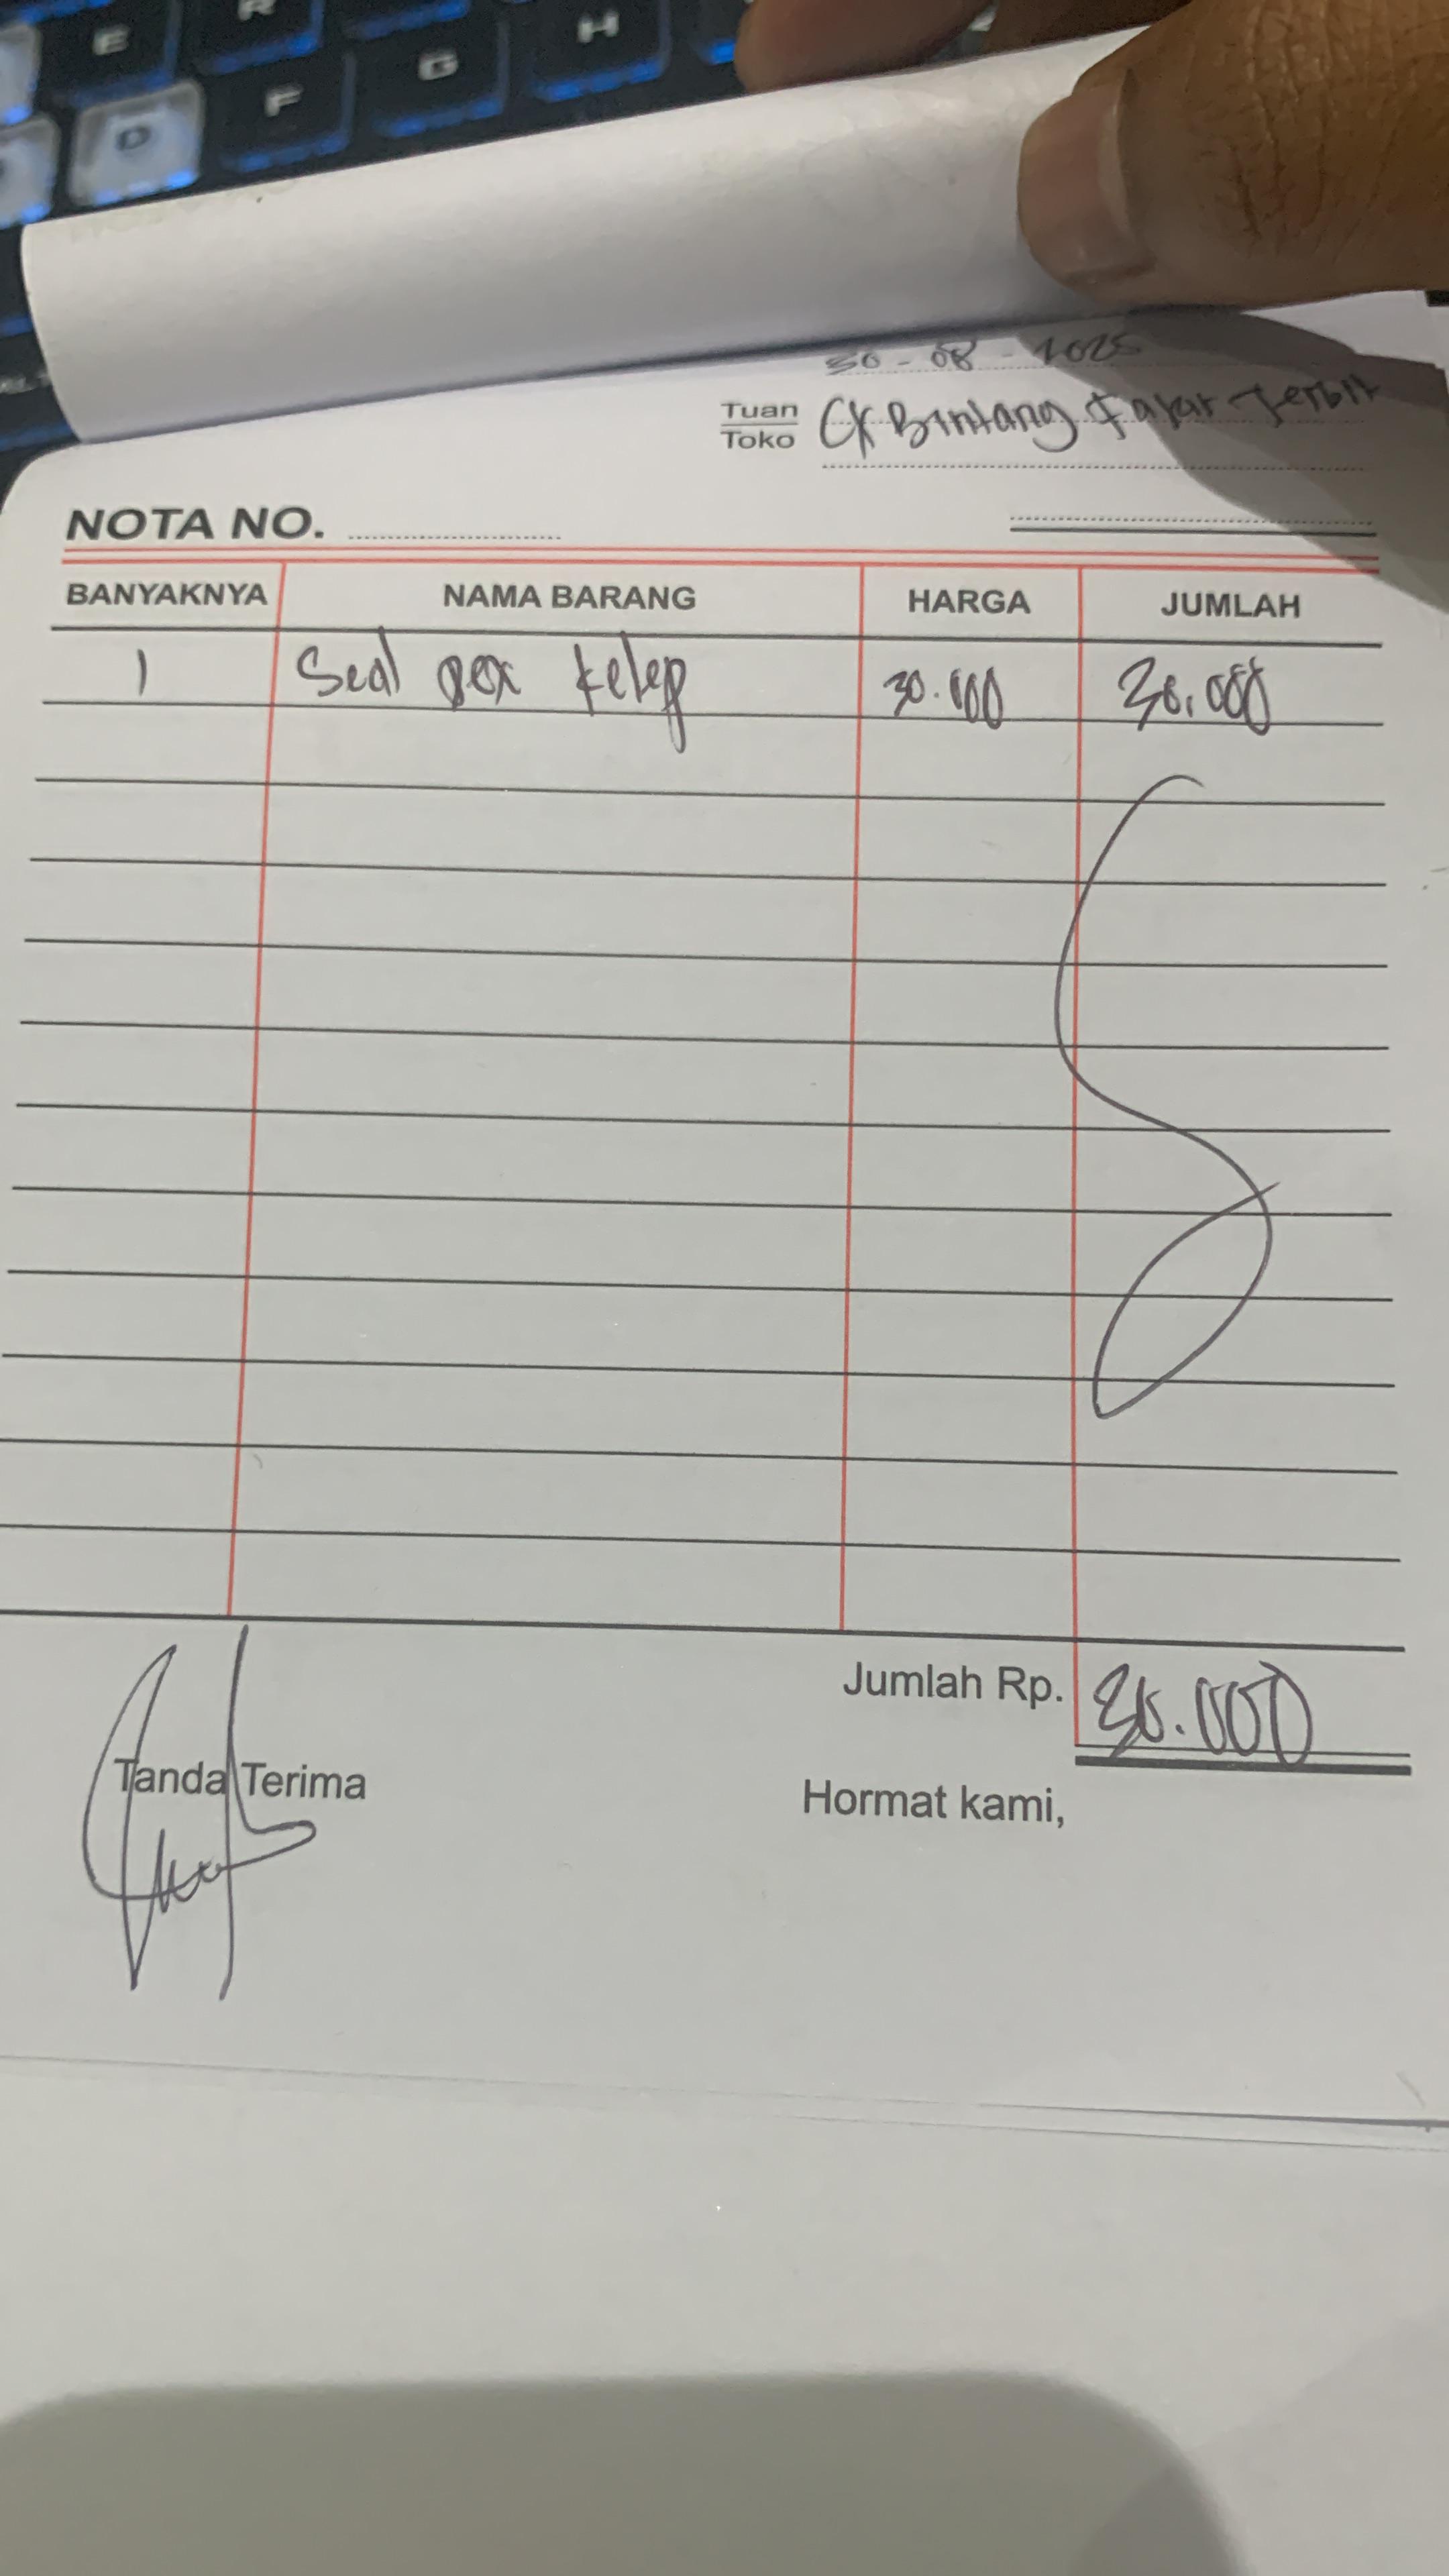 E R H
D F G
30-08-2025
Tuan
Toko CK Bintang Fajar Terbit
NOTA NO.
BANYAKNYA NAMA BARANG HARGA JUMLAH
1 Seal box kelep 30.000 30.000
Jumlah Rp. 30.000
Tanda Terima
Hormat kami,